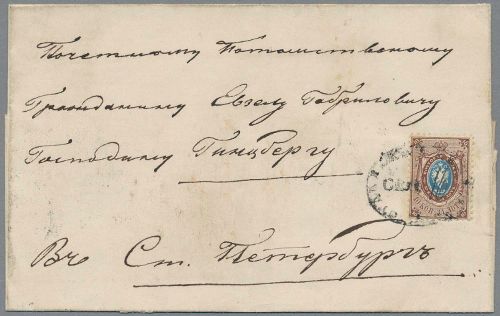 Почетному Потомственному
Гражданину Евзелу Габриловичу
Господину Гинцбергу
Въ Ст. Петербургъ